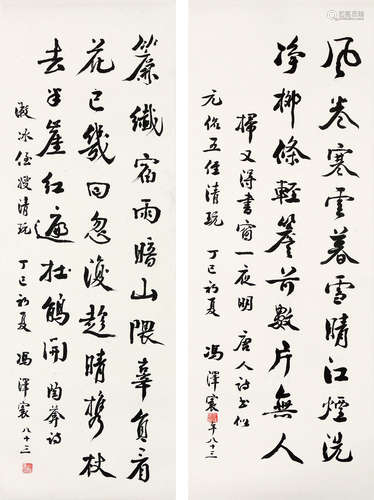 風卷寒雲暮雪晴江煙洗
净柳條輕簷前數片無人
掃又得書窗一夜明 唐人詩書似
五侄清玩 丁巳初夏 馮澤寰年八十三
簾纖宿雨暗山隈辜負看
花已幾回忽復趁晴攜杖
去半崖紅遍杜鵑開 陶詩
凝冰侄嫂清玩 丁巳初夏 馮澤寰八十三